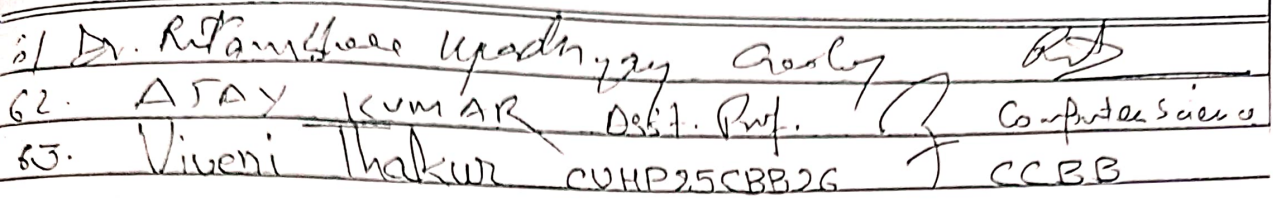 61 Dr. Ritambhara Upadhyay Geology
62. AJAY KUMAR Asst. Prof. Computer Science
63. Viveni Thakur CUHP25CBB26 CCBB